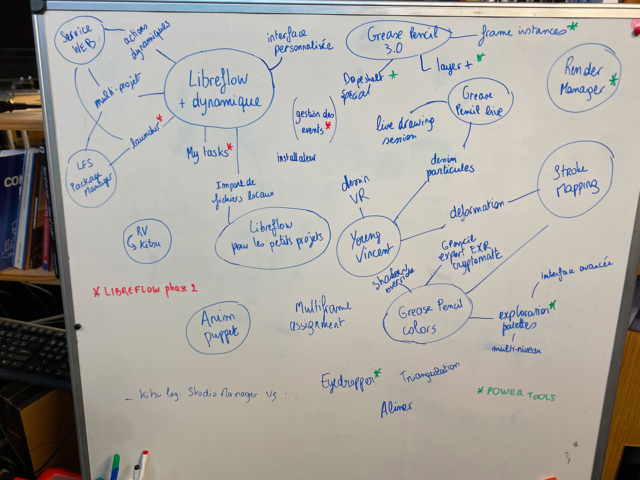 Service
WEB
actions
dynamiques
interface
personnalisée
Grease Pencil
3.0
frame instances*
layer + *
Dopesheet +
spécial
Render
Manager*
Libreflow
+ dynamique
multi-projet
launcher*
LFS
Package
Manager
My tasks*
(gestion des
events*)
installateur
Grease
Pencil live
live drawing
session
dessin
particules
Stroke
Mapping
Import de
fichiers locaux
Libreflow
pour les petits projets
dessin
VR
Young
Vincent
déformation
RV
↳ Kitsu
Geopencil
export EXR
cryptomatte
shader
override
* LIBREFLOW phase 2
Anim
puppet
Multiframe
assignment
Grease Pencil
colors
interface avancée
exploration*
palettes
multi-niveau
Eyedropper*
Triangulation
* POWER TOOLS
– Kitsu log. Studio Manager vs